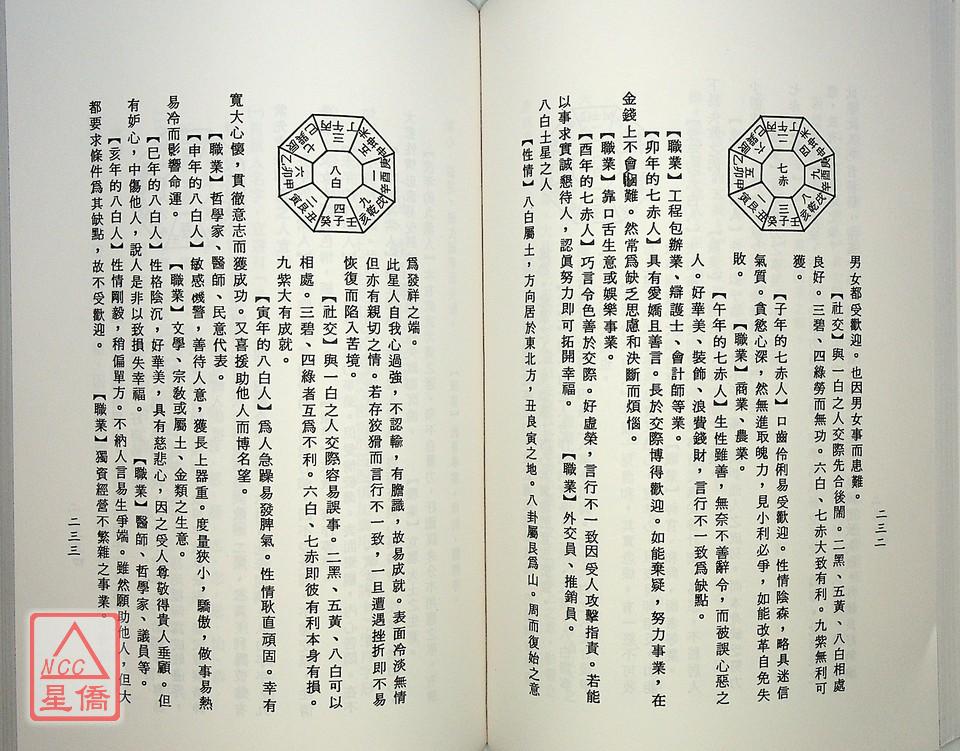 男女都受歡迎。也因男女事而患難。
【社交】與一白之人交際先合後鬧。二黑、五黃、八白相處
良好。三碧、四綠勞而無功。六白、七赤大致有利。九紫無利可
獲。
【子年的七赤人】口齒伶俐易受歡迎。性情陰森，略具迷信
氣質。貪慾心深，然無進取魄力，見小利必爭，如能改革自免失
敗。　【職業】商業、農業。
【午年的七赤人】生性雖善，無奈不善辭令，而被誤心惡之
人。好華美、裝飾、浪費錢財，言行不一致爲缺點。
七赤
二
丁午丙
四
未坤申
九
庚酉辛
八
戌乾亥
三
壬子癸
一
丑艮寅
五
甲卯乙
六
辰巽巳
【職業】工程包辦業、辯護士、會計師等業。
【卯年的七赤人】具有愛嬌且善言。長於交際博得歡迎。如能棄疑，努力事業，在
金錢上不會困難。然常爲缺乏思慮和決斷而煩惱。
【職業】靠口舌生意或娛樂事業。
【酉年的七赤人】巧言令色善於交際。好虛榮，言行不一致因受人攻擊指責。若能
以事求實誠懇待人，認眞努力即可拓開幸福。　【職業】外交員、推銷員。
八白土星之人
【性情】八白屬土，方向居於東北方，丑艮寅之地。八卦屬艮爲山。周而復始之意
二三二
爲發祥之端。
此星人自我心過強，不認輸，有膽識，故易成就。表面冷淡無情
但亦有親切之情。若存狡猾而言行不一致，一旦遭遇挫折即不易
恢復而陷入苦境。
【社交】與一白之人交際容易誤事。二黑、五黃、八白可以
相處。三碧、四綠者互爲不利。六白、七赤即彼有利本身有損。
九紫大有成就。
【寅年的八白人】爲人急躁易發脾氣。性情耿直頑固。幸有
八白
三
丁午丙
五
未坤申
一
庚酉辛
九
戌乾亥
四
壬子癸
二
丑艮寅
六
甲卯乙
七
辰巽巳
寬大心懷，貫徹意志而獲成功。又喜援助他人而博名望。
【職業】哲學家、醫師、民意代表。
【申年的八白人】敏感機警，善待人意，獲長上器重。度量狹小，驕傲，做事易熱
易冷而影響命運。　【職業】文學、宗敎或屬土、金類之生意。
【巳年的八白人】性格陰沉，好華美，具有慈悲心，因之受人尊敬得貴人垂顧。但
有妒心，中傷他人，說人是非以致損失幸福。　【職業】醫師、哲學家、議員等。
【亥年的八白人】性情剛毅，稍偏單方。不納人言易生爭端。雖然願助他人，但大
都要求條件爲其缺點，故不受歡迎。　【職業】獨資經營不繁雜之事業。
二三三
NCC
星僑